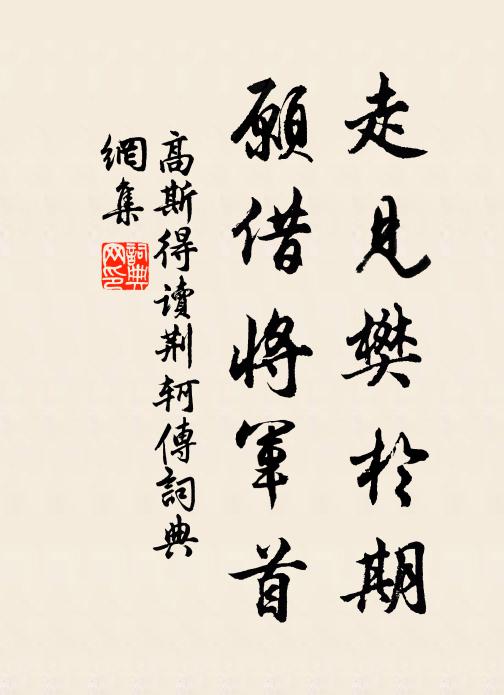 走見樊於期
願借將軍首
高斯得讀荆軻傳詞典
網集
詞典網印